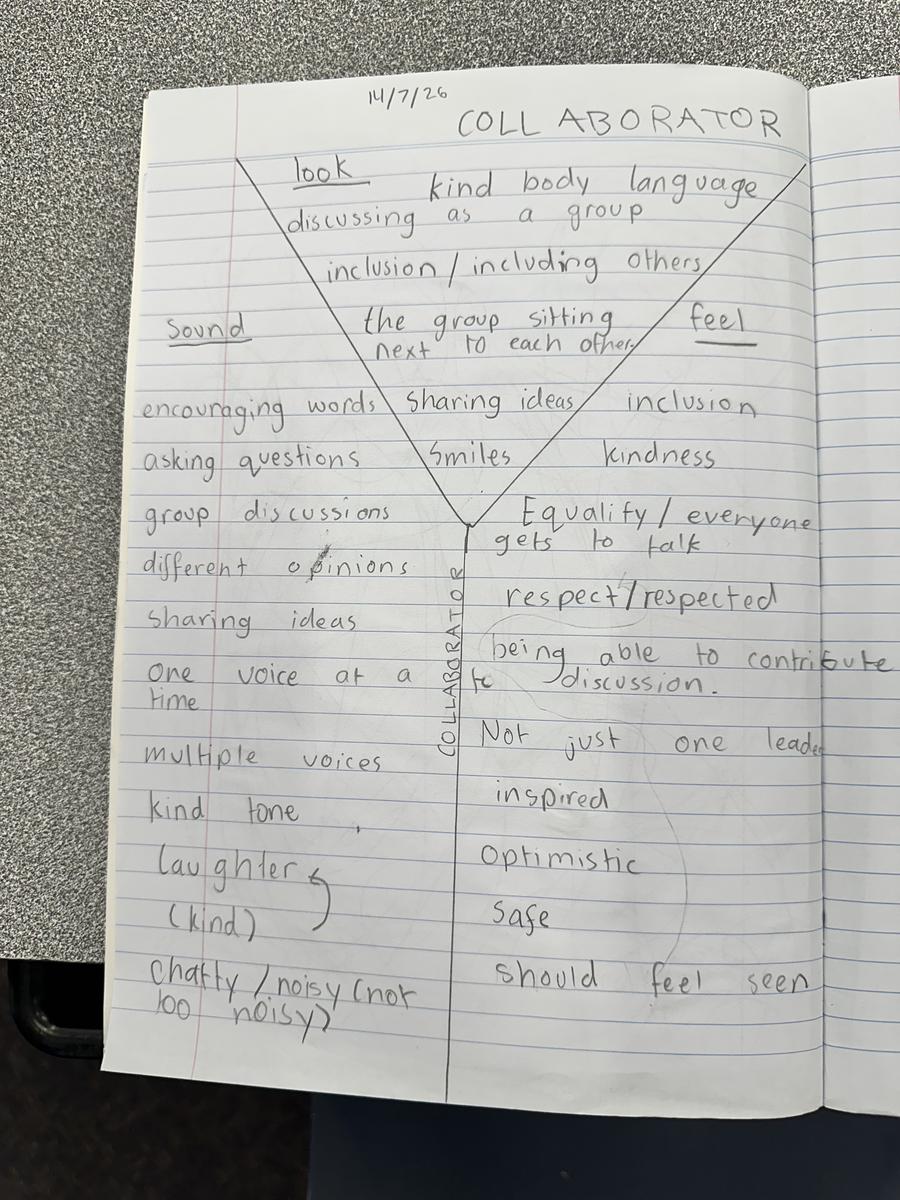 14/7/26
COLLABORATOR
look
kind body language
discussing as a group
inclusion / including others
the group sitting
next to each other
sharing ideas
smiles
sound
encouraging words
asking questions
group discussions
different opinions
sharing ideas
one voice at a
time
multiple voices
kind tone
laughter
(kind)
chatty / noisy (not
too noisy)
COLLABORATOR
feel
inclusion
kindness
Equality / everyone
gets to talk
respect / respected
being able to contribute
to discussion.
Not just one leader
inspired
Optimistic
safe
should feel seen